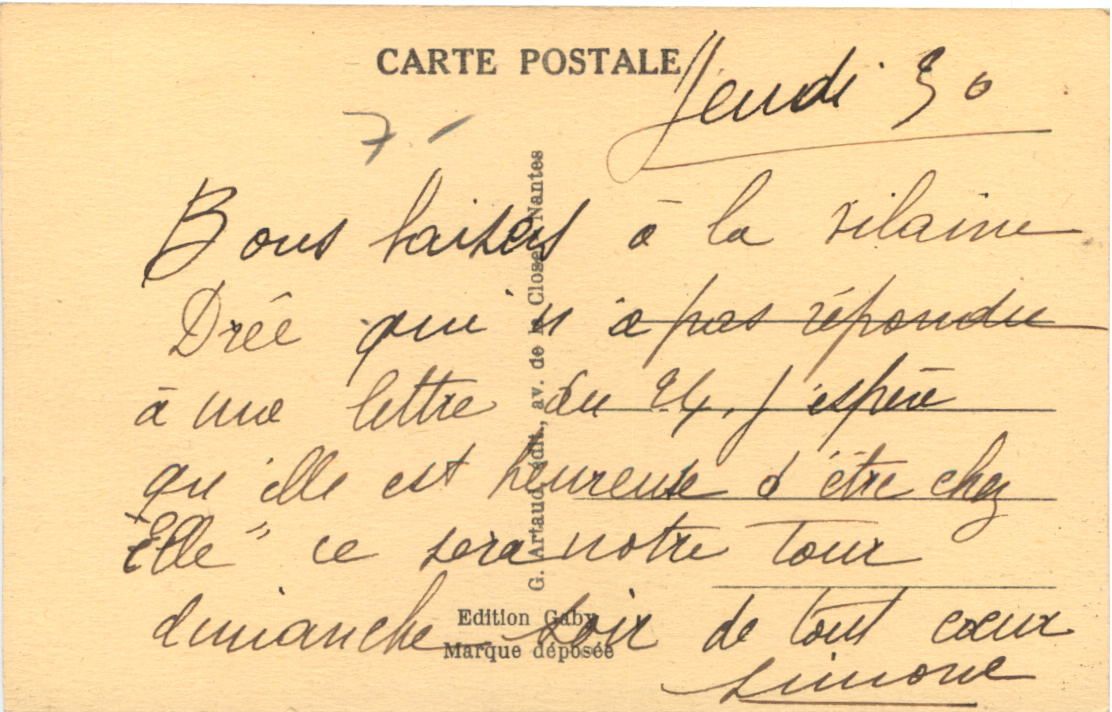 CARTE POSTALE
Jeudi 30
7 -
Bons baisers à la vilaine
Drée qui n'a pas répondu
à une lettre du 24. J'espère
qu'elle est heureuse d'être chez
"Elle" ce sera notre tour
dimanche soir de tout cœur
Simone
G. Artaud, édit., av. de la Close, Nantes
Edition Gaby
Marque déposée